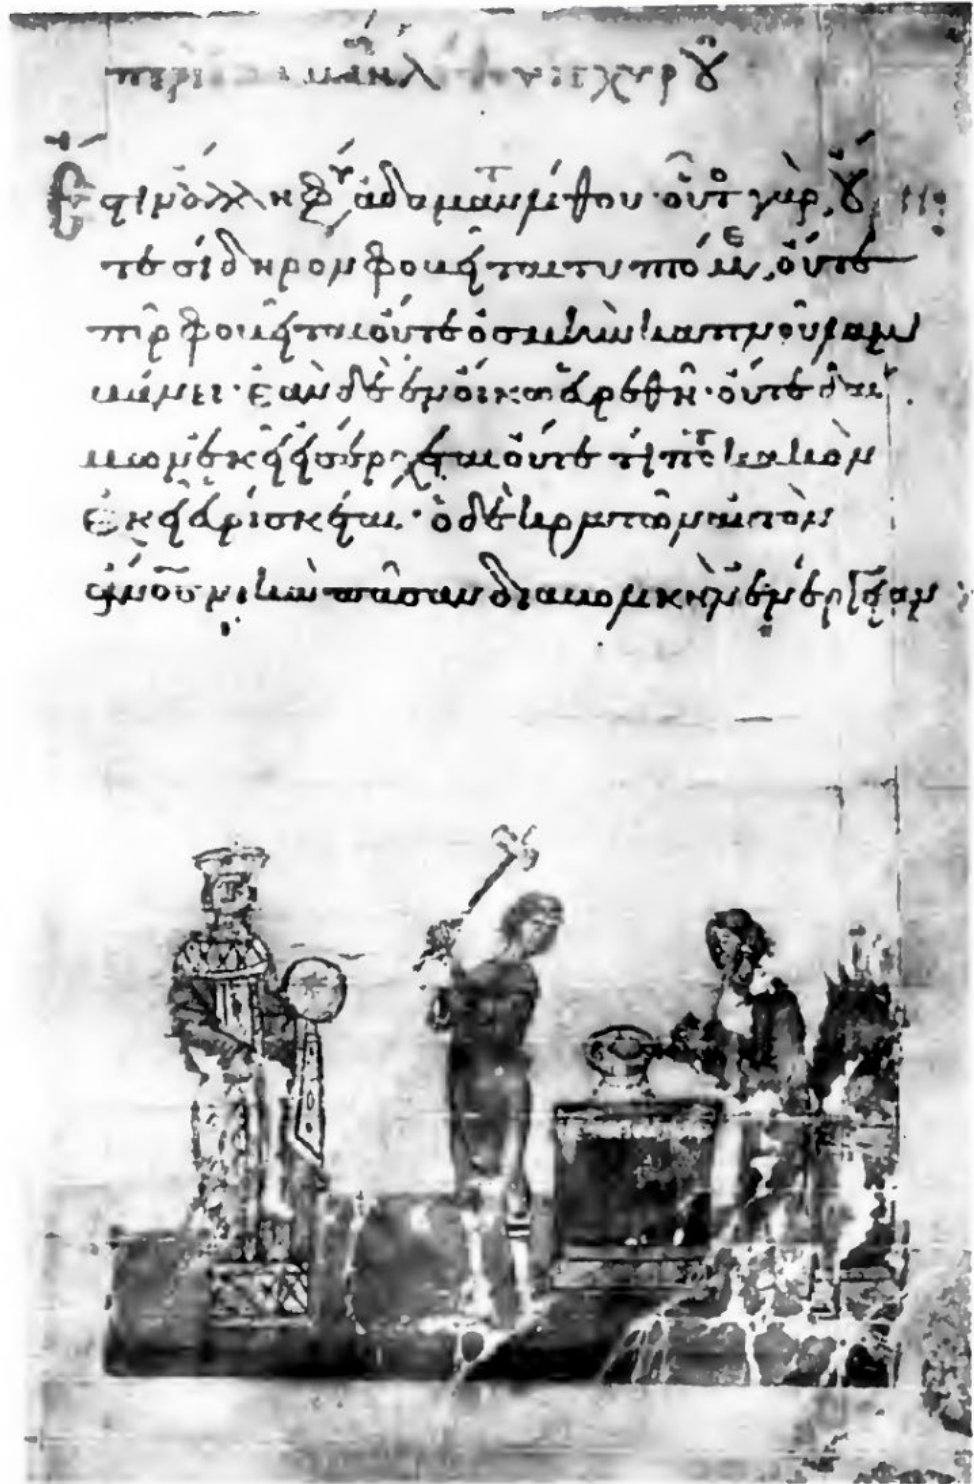 περὶ
Ἔστιν ἄλλη φύ ἀδαμαντ λίθου· οὗτο γὰρ οὔ
τε σίδηρον φοβεῖται τυπτόμε, οὔτε
πῦρ φοβεῖται οὔτε ὀσμὴν καπνοῦ λαμ
βάνει· ἐὰν δὲ ἐν οἴκω εὑρεθῆ· οὔτε δαί
μων ἐκεῖ εἰσέρχεται οὔτε τί ποτ κακὸν
ἐκεῖ εὑρίσκεται· ὁ δὲ κρατῶν αὐτὸν
ἄνος νικᾶ πᾶσαν διαβολικὴν ἐνέργειαν